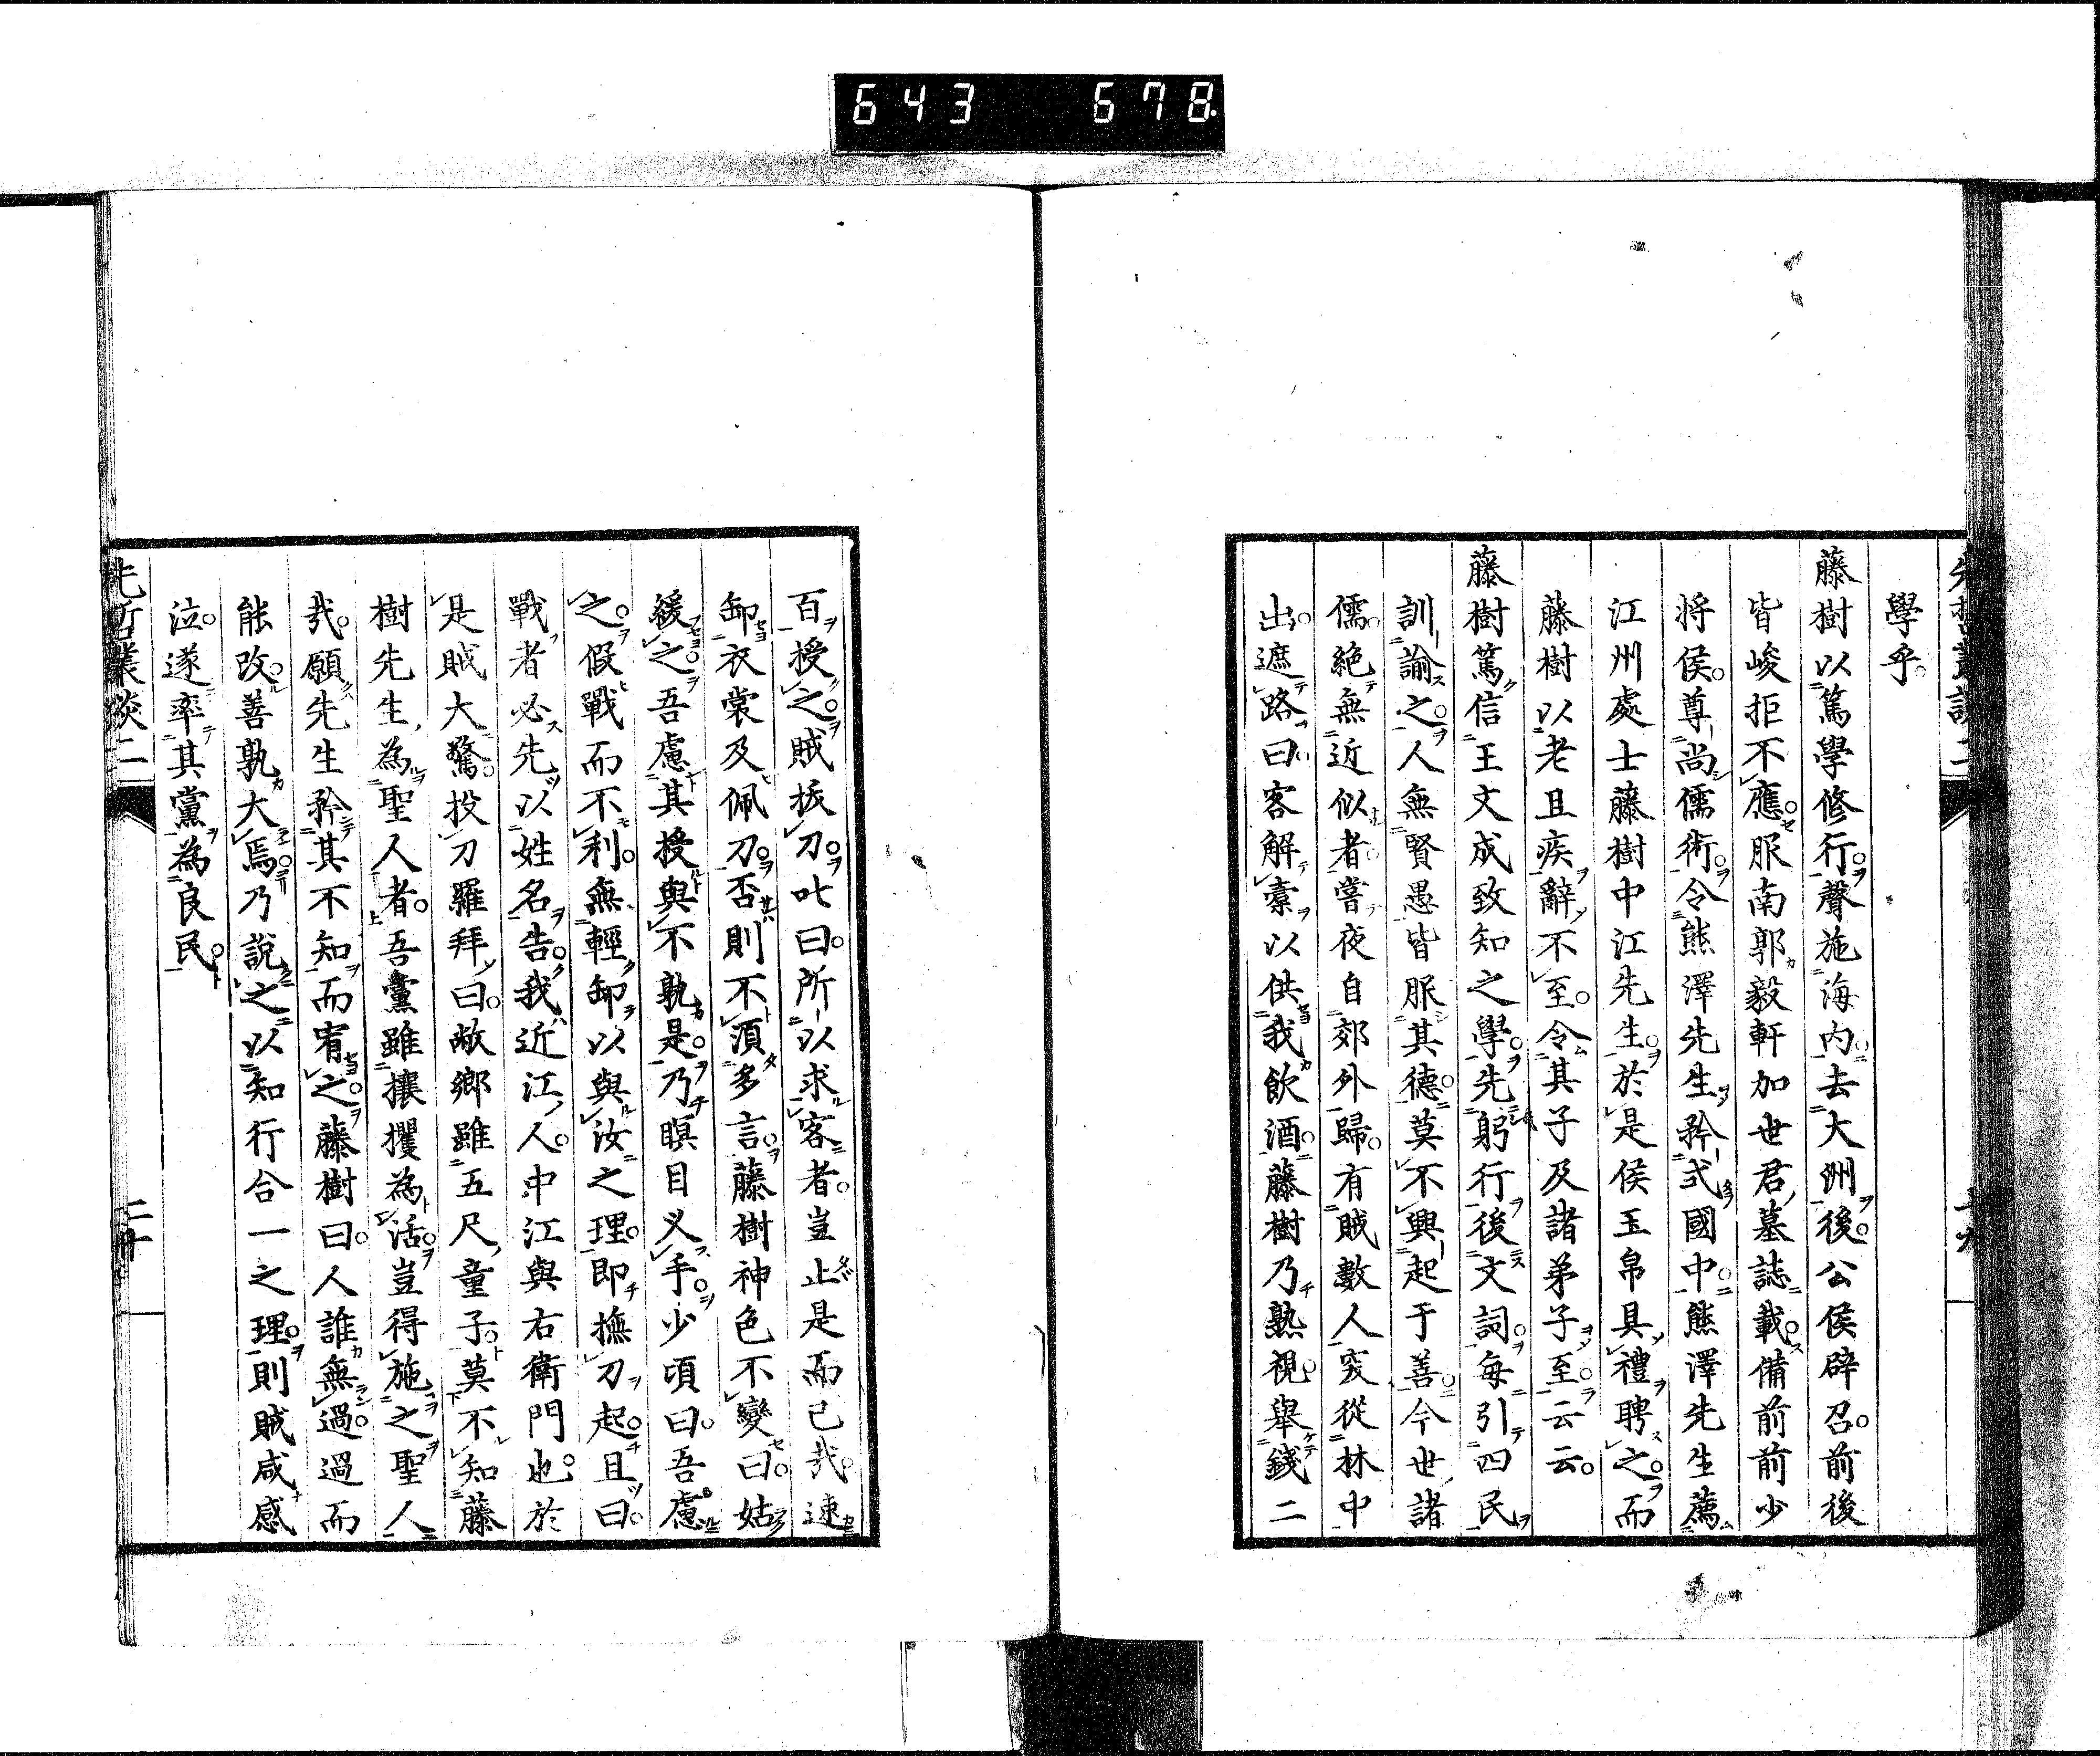 643 678
學乎
藤樹以篤學修行聲施海内去大洲後公侯辟召前後
皆峻拒不應服南郭毅軒加世君墓誌載備前前少
将侯尊尚儒術令熊澤先生矜式國中熊澤先生薦
江州處士藤樹中江先生於是侯玉帛具禮聘之而
藤樹以老且疾辭不至令其子及諸弟子至云云
藤樹篤信王文成致知之學先躬行後文詞每引四民
訓諭之人無賢愚皆服其德莫不興起于善今世諸
儒絶無近似者嘗夜自郊外歸有賊數人突從林中
出遮路曰客解橐以供我飲酒藤樹乃熟視舉錢二
百授之賊拔刀叱曰所以求客者豈止是而已哉速
卸衣裳及佩刀否則不須多言藤樹神色不變曰姑
緩之吾慮其授與不孰是乃瞑目乂手少頃曰吾慮
之假戰而不利無輕卸以與汝之理即撫刀起且曰
戰者必先以姓名告我近江人中江與右衛門也於
是賊大驚投刀羅拜曰敝鄉雖五尺童子莫不知藤
樹先生為聖人者吾黨雖攘攫為活豈得施之聖人
哉願先生矜其不知而宥之藤樹曰人誰無過過而
能改善孰大焉乃說之以知行合一之理則賊咸感
泣遂率其黨為良民
先哲叢談二
二十